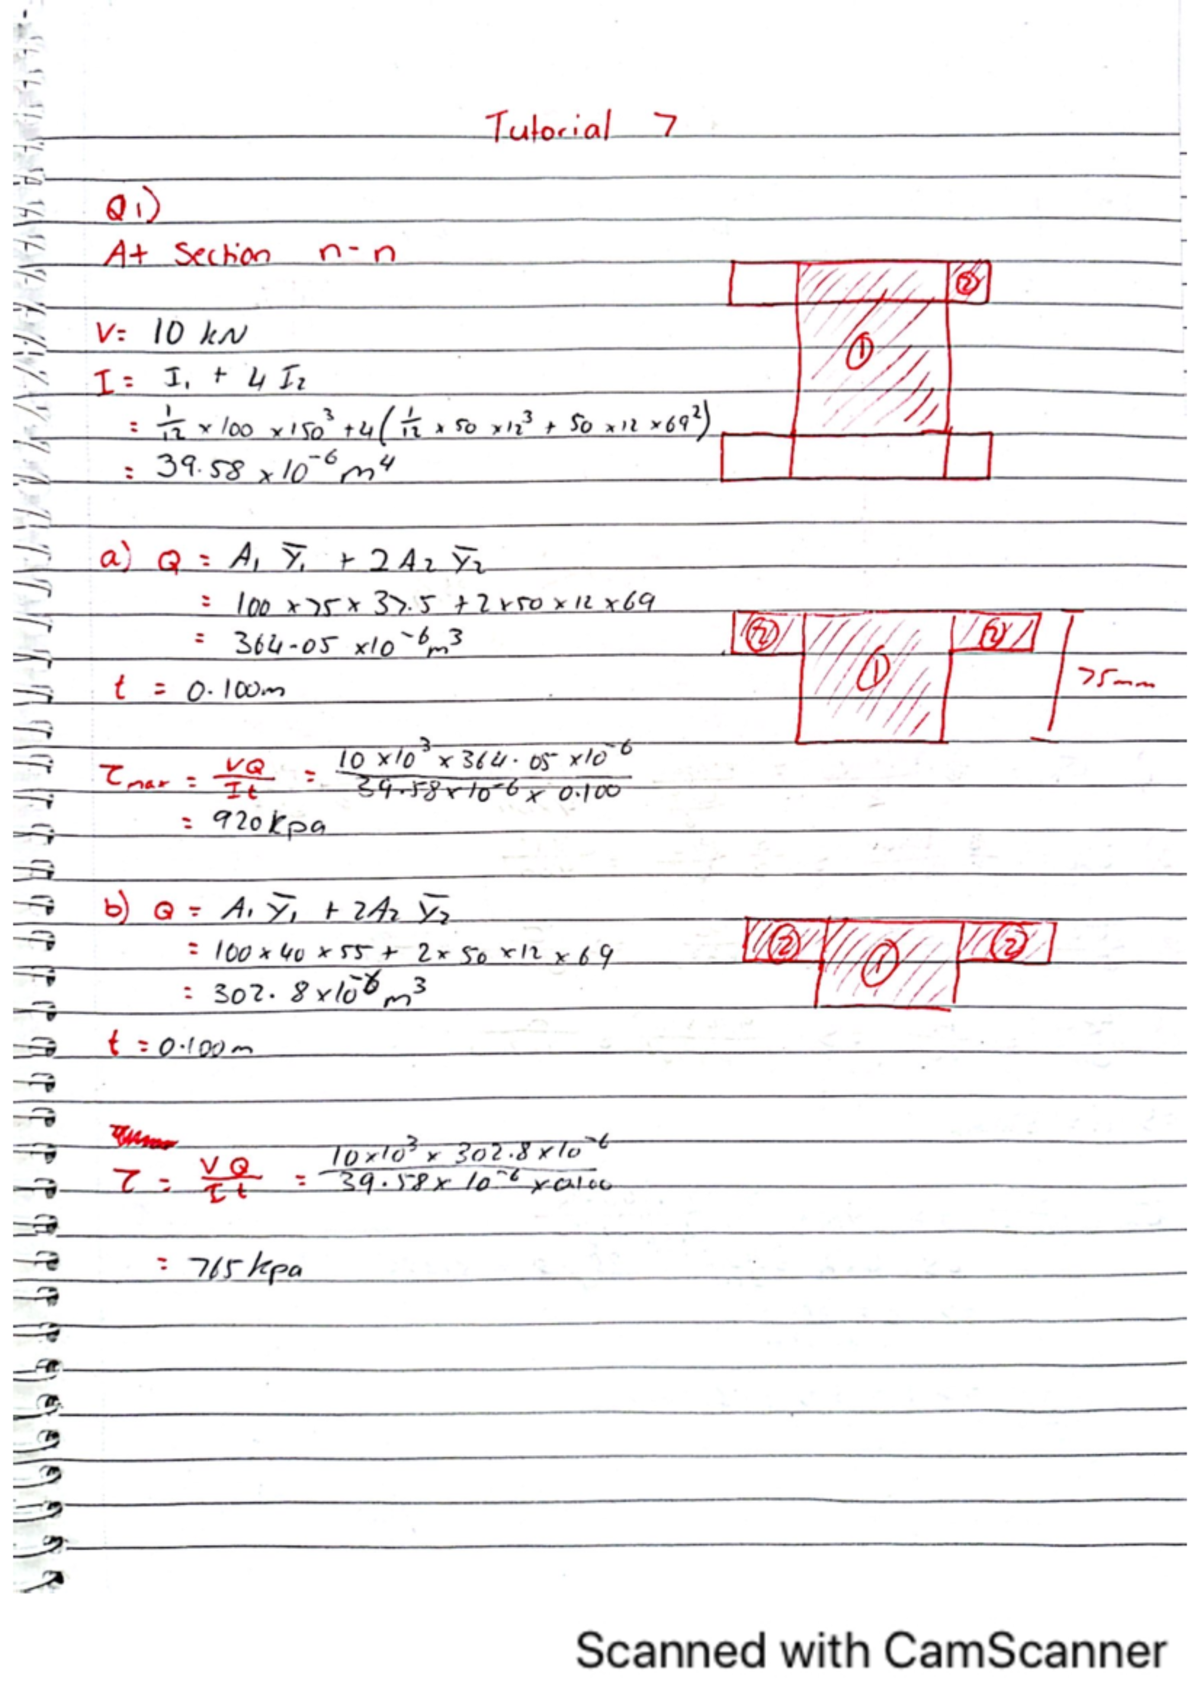 Tutorial 7
Q1)
At Section n-n
V = 10 kN
I = I₁ + 4 I₂
= 1/12 × 100 × 150³ + 4 ( 1/12 × 50 × 12³ + 50 × 12 × 69² )
= 39.58 × 10⁻⁶ m⁴
②
①
a) Q = A₁ Ȳ₁ + 2 A₂ Ȳ₂
= 100 × 75 × 37.5 + 2 × 50 × 12 × 69
= 364.05 × 10⁻⁶ m³
t = 0.100m
② ① ②
75mm
τmax = VQ/It = 10 × 10³ × 364.05 × 10⁻⁶ / 39.58 × 10⁻⁶ × 0.100
= 920 kpa
b) Q = A₁ Ȳ₁ + 2A₂ Ȳ₂
= 100 × 40 × 55 + 2 × 50 × 12 × 69
= 302.8 × 10⁻⁶ m³
② ① ②
t = 0.100m
τ = VQ/It = 10 × 10³ × 302.8 × 10⁻⁶ / 39.58 × 10⁻⁶ × 0.100
= 765 kpa
Scanned with CamScanner